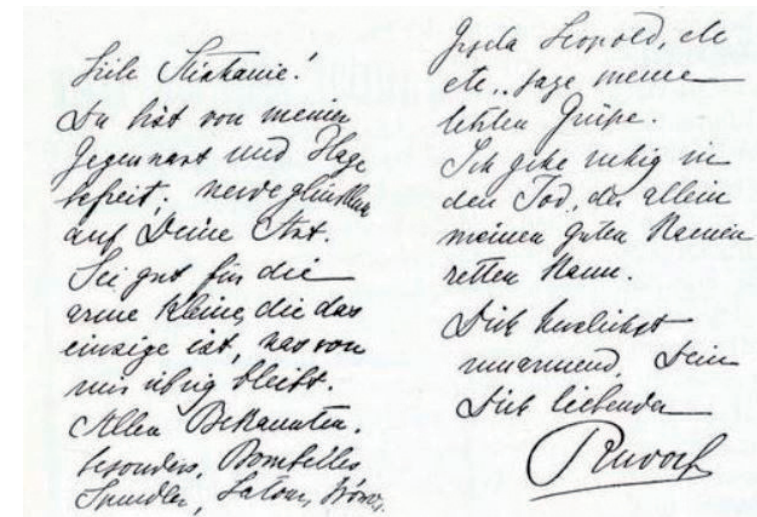 Liebe Stephanie!
Du bist von meiner
Gegenwart und Plage
befreit; werde glücklich
auf Deine Art.
Sei gut für die
arme Kleine, die das
einzige ist, was von
mir übrig bleibt.
Allen Bekannten,
besonders, Bombelles,
Spindler, Latour, Wowo,
Gisela Leopold, etc
etc.. sage meine
letzten Grüße.
Ich gehe ruhig in
den Tod, der allein
meinen guten Namen
retten kann.
Dich herzlichst
umarmend, Dein
Dich liebender
Rudolf